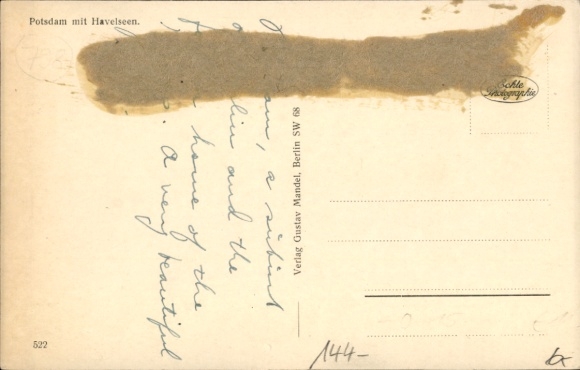 Potsdam mit Havelseen.
Echte
Photographie
am, a suburb
lin and the
home of the
. A very beautiful
Verlag Gustav Mandel, Berlin SW 68
522
144-